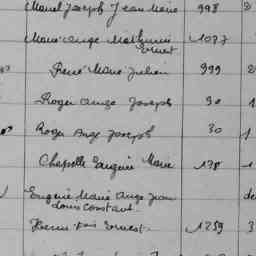 Morel Joseph Jean Marie 998 2
Marie Ange Mathurin
Ernest 1077
René Marie Julien 999 2
Roger Ange Joseph 30 1
Roger Ange Joseph 30 1
Chapelle Eugène Marie 198 1
Eugène Marie Ange Jean de
Louis Constant
Pierre Ernest 1259 3